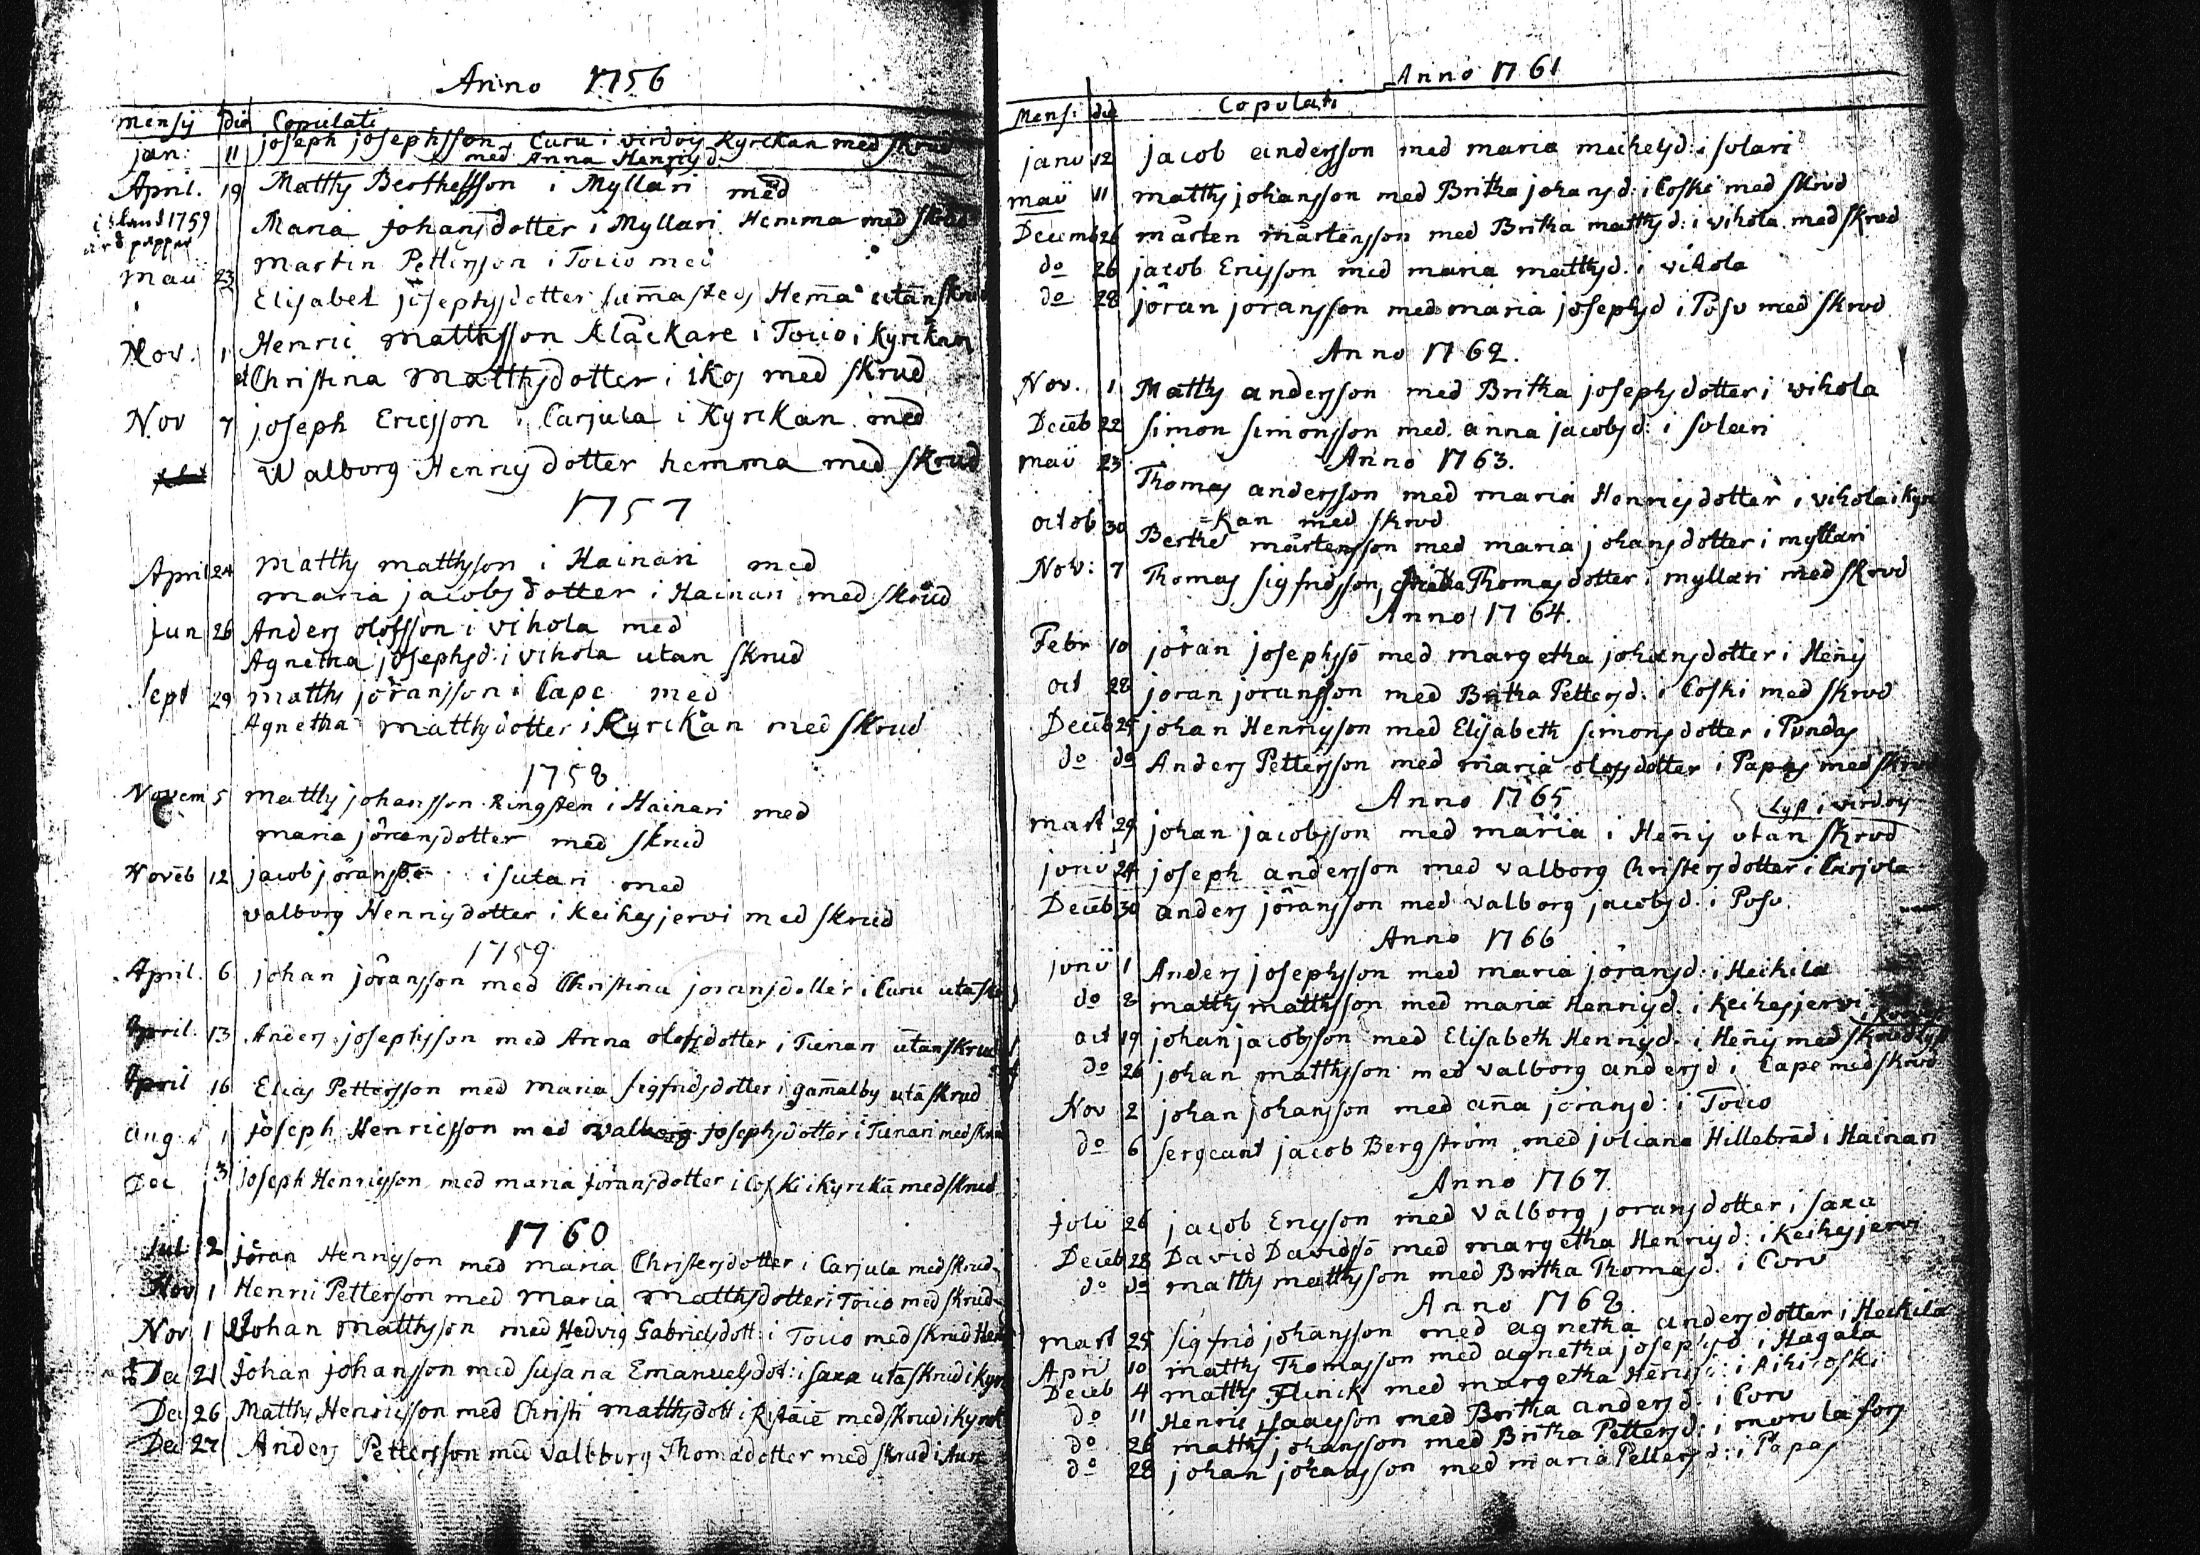 Anno 1756
Mensis die Copulati
jan: 11 joseph josephsson Curu i virdois Kyrckan med skrud
med Anna Henrisd
April. 19 Matths Berthelsson i Myllari med
Maria johansdotter i Myllari Hemma med skrud
Maii 23 Martin Pettersson i Toiio med
Elisabet josephsdotter Hem̄a utan skrud
Nov. 1 Henric Matthsson Klåckare i Toiio i Kyrckan
et Christina Matthsdotter i ikos med skrud
Nov 7 joseph Ericsson i Carjula i Kyrckan med
Walborg Henrisdotter hemma med skrud
1757
April 24 Matths matthsson i Hainari med
maria jacobsdotter i Hainari med skrud
Jun 26 Anders olofsson i vihola med
Agnetha josephsd: i vihola utan skrud
Sept 29 matths jöransson i Cape med
Agnetha matthsdotter i Kyrckan med skrud
1758
Novem 5 matths johansson Ringsten i Hainari med
maria jöransdotter med skrud
Novēb 12 jacob jöransso i sutari med
valborg Henrisdotter i Keihesjervi med skrud
1759
April. 6 johan jöransson med Christina joransdotter i Curu utā
April. 13 Anders josephsson med Anna olofsdotter i Tienari utan skrud
April 16 Elias Pettersson med Maria sigfridsdotter i gam̄alby utā skrud
Aug: 1 joseph Henricsson med walborg josephsdotter i Tienari med
Dec 31 joseph Henrisson med maria jöransdotter i Coski i Kyrckā med skrud
1760
jul 2 jöran Henrisson med maria Christersdotter i Carjula med skrud
Nov 1 Henric Petterson med Maria Matthsdotter i Toiio med skrud
Nov 1 Johan Matthsson med Hedvig Gabrielsdott: i Toiio med skrud
De 21 Johan johansson med susana Emanuelsdot: i saxa utā skrud i
De 26 Matths Henricsson med Christi matthsdott i med skrud i
De 27 Anders Pettersson med Valborg Thomadotter med skrud i
Anno 1761
Mens: die Copulati
janu 12 jacob andersson med maria michelsd: i solari
maii 11 matths johansson med Britha johansd: i Coski med skrud
Decemb 26 mårten mårtensson med Britha matthsd: i vihola med skrud
do 26 jacob Ericsson med maria matthsd. i vihola
do 28 jöran joransson med maria josephsd i Poso med skrud
Anno 1762.
Nov. 1 Matths andersson med Britha josephsdotter i vihola
Decēb 22 simon simonsson med anna jacobsd: i solari
Anno 1763.
maii 23 Thomas andersson med maria Henrisdotter i vihola i Kyrc
=kan med skrud
octob 30 Berthel mårtensson med maria johansdotter i myllari
Nov: 7 Thomas sigfridsson, Thomasdotter i myllari med skrud
Anno 1764.
Febr 10 jöran josephssō med margetha johansdotter i Hen̄is
oct 28 joran joransson med Britha Pettersd: i Coski med skrud
Decēb 25 johan Henrisson med Elisabeth simonsdotter i Pundas
do do Anders Pettersson med maria olofsdotter i Papas med skrud
Anno 1765
Lyst i virdois
mart 29 johan jacobsson med maria i Hen̄is utan skrud
junii 24 joseph andersson med valborg Christersdotter i Carjola
Decēb 30 anders jöransson med valborg jacobsd. i Poso.
Anno 1766
junii 1 Anders josephsson med maria jöransd: i Heikila
do 8 matths matthsson med maria Henrisd. i Keihesjervi
oct 19 johan jacobsson med Elisabeth Henrisd. i Hen̄is med skrud lyst
do 26 johan matthsson med valborg andersd i Cape med skrud
Nov 2 johan johansson med an̄a jöransd: i Toiio
do 6 sergeant jacob Bergström med juliana Hillebrād i Hainari
Anno 1767.
Julii 26 jacob Ericsson med Valborg joransdotter i saxa
Decēb 28 David Davidssō med margetha Henrisd: i Keihesjervi
do do matths matthsson med Britha Thomasd. i Coro
Anno 1768
mart 25 sigfrid johansson med agnetha andersdotter i Heikila
April 10 matths Thomasson med agnetha josephsd i Hagala
Decēb 4 matths Flinck med margetha Henrisd: i
do 11 Henric jsaacsson med Britha andersd: i Coro
do 26 matths johansson med Britha Pettersd: i morola fors
do 28 johan johansson med maria Pettersd: i Papas